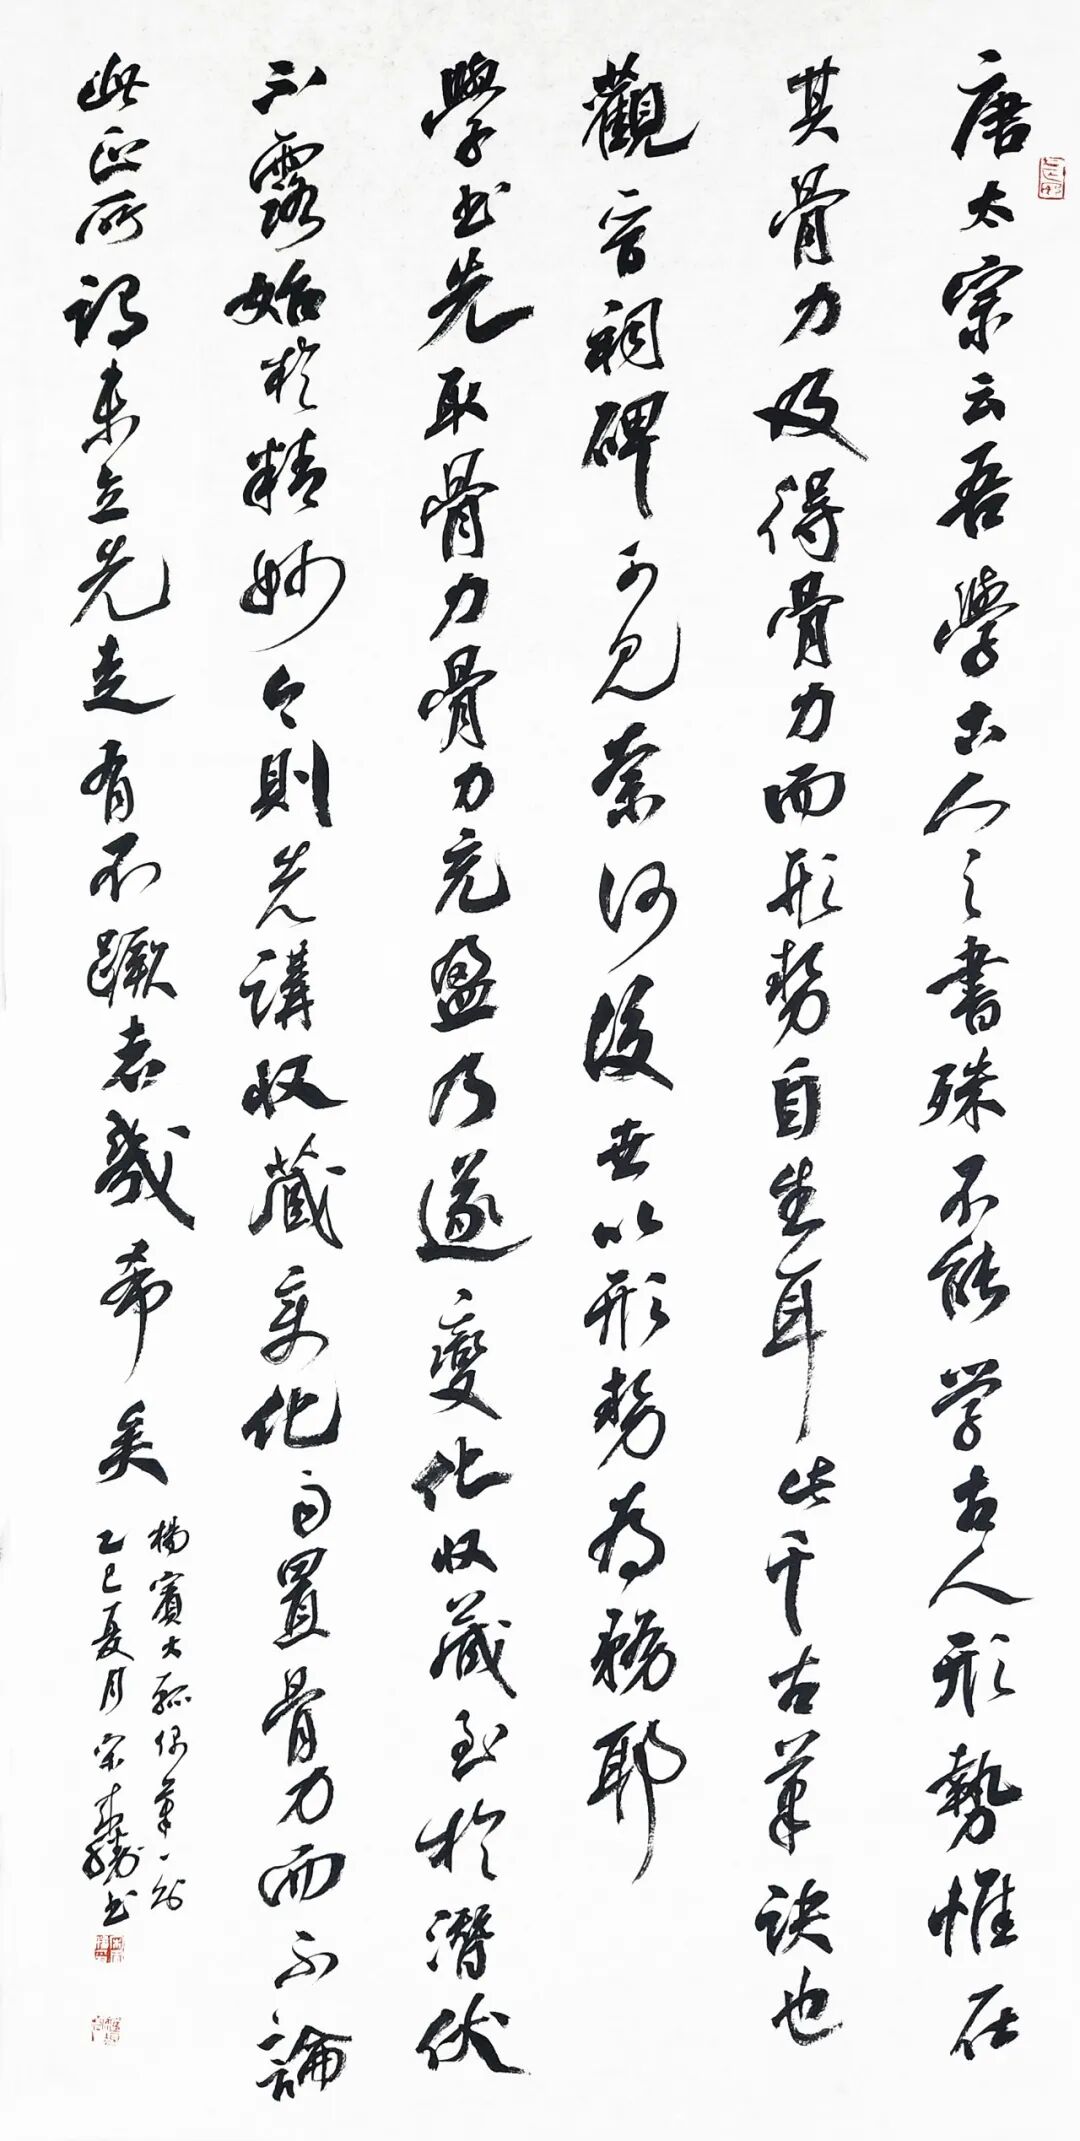 唐太宗云吾學古人之書殊不能学古人形勢惟在
其骨力及得骨力而形势自生耳此千古筆诀也
觀晋祠碑可見奈何後世以形势為務耶
學书先取骨力骨力充盈乃遂變化收藏至於潛伏
不露始於精妙今則先講收藏变化置骨力而不論
此正所謂未立先走有不蹶者幾希矣
楊賓大瓢偶筆一則
乙巳夏月宋书